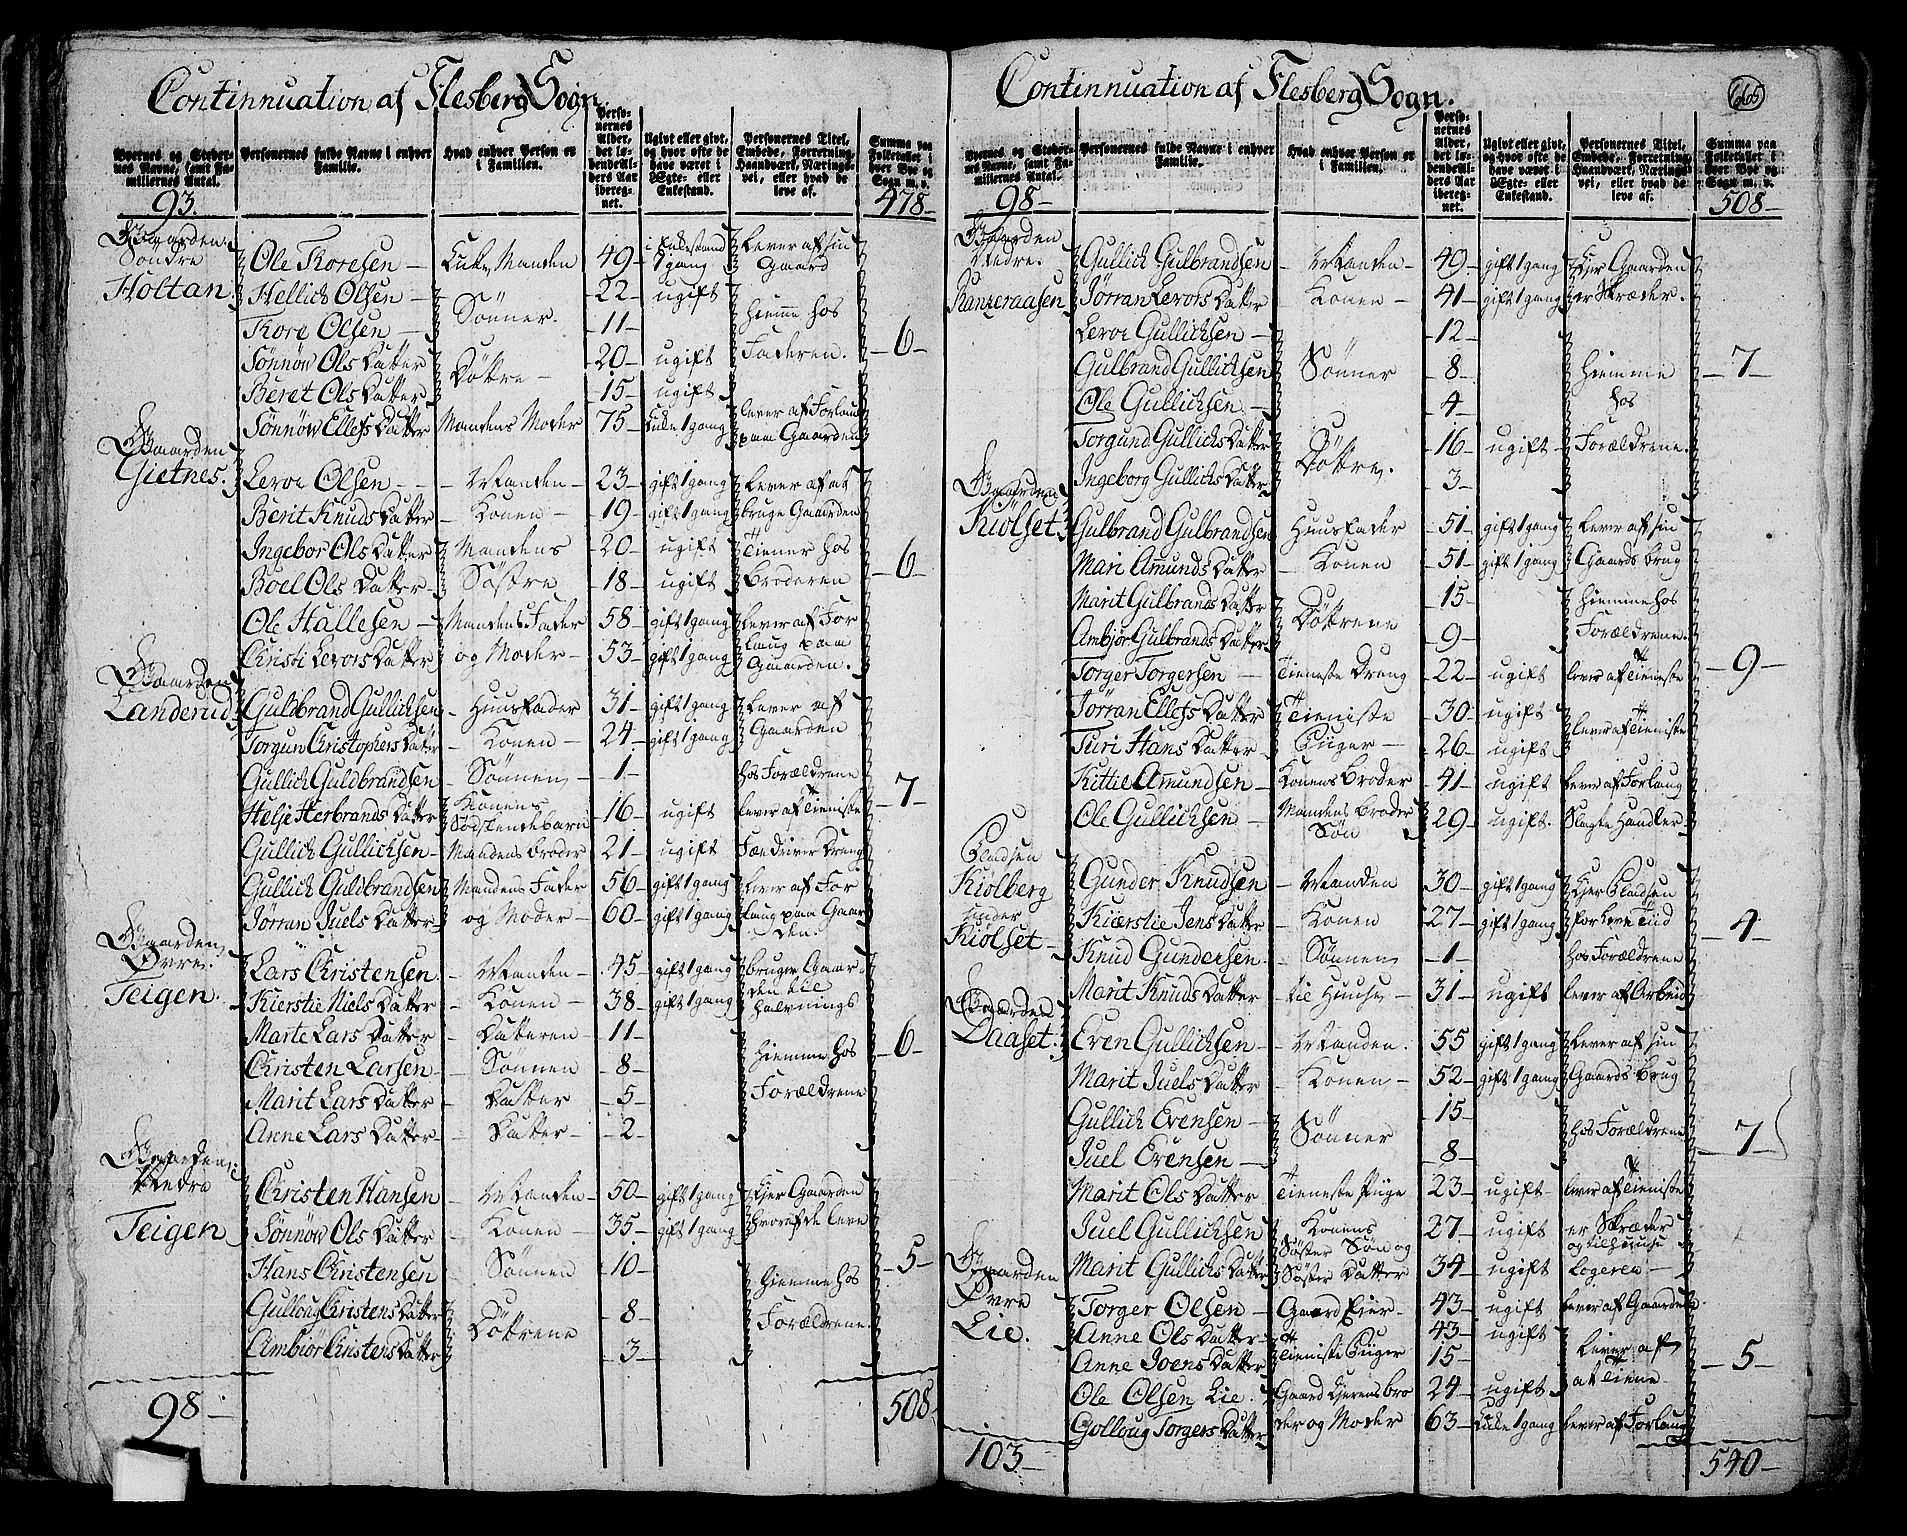 Continnuation af Flesberg Sogn.
Byernes og Stedernes Navne, samt Familliernes Antal. | Personernes fulde Navne i enhver Familie. | Hvad enhver Person er i Familien. | Personernes Alder, det løbendeAlders Aar iberegnet. | Ugivt eller givt, og hvor ofte de have været i Ægte- eller Enkestand. | Personernes Titel, Embede, Forretning, Haandværk, Næringsvei, eller hvad de leve af. | Summa paa Folketallet i hver Bye og Sogn m. v.
93. | 478-
Gaarden Søndre Holtan.
Ole Toresen | Enke Manden | 49 | i Enkestand 1 gang | Lever af sin Gaard
Hellich Olsen | Sønner. | 22 | ugift | hiemme hos Faderen.
Tore Olsen | 11
Sønnøw Ols Datter | Døttre | 20 | ugift | 6
Beret Ols Datter | 15 | ugift
Sønnøw Ellefs Datter | Mandens Moder | 75 | Enke 1 gang | lever af Forlau paa Gaarden
Gaarden Gietnes.
Levor Olsen | Manden | 23 | gift 1 gang | Lever af at
Berit Knuds Datter | Konen | 19 | gift 1 gang | bruge Gaarden
Ingebor Ols Datter | Mandens | 20 | ugift | Tiener hos | 6
Boel Ols Datter | Søstre | 18 | ugift | Broderen
Ole Hallesen | Mandens Fader | 58 | gift 1 gang | lever af For
Christi Levors Datter | og Moder | 53 | gift 1 gang | laug paa Gaarden.
Gaarden Landerud
Guldbrand Gullichsen | Huusfader | 31 | gift 1 gang | Lever af
Torgun Christophers Datter | Konen | 24 | gift 1 gang | Gaarden
Gullich Guldbrandsen | Sønnen | 1 | hos Forældrene | 7
Helje Herbrands Datter | Konens Sødskendebarn | 16 | ugift | lever af Tieniste
Gullich Gullichsen | Mandens Broder | 21 | ugift | Fædriver Dreng
Gullich Guldbrandsen | Mandens Fader | 56 | gift 1 gang | lever af For
Jørran Juels Datter | og Moder | 60 | gift 1 gang | laug paa Gaarden.
Gaarden Øvre Teigen.
Lars Christensen | Manden | 45 | gift 1 gang | bruger Gaar
Kierstie Niels Datter | Konen | 38 | gift 1 gang | den til halvnings
Marte Lars Datter | Datteren | 11 | 6
Christen Larsen | Sønnen | 8 | hiemme hos
Marit Lars Datter | Datter | 5 | Forældrene
Anne Lars Datter | Datter | 2
Gaarden Nedre Teigen
Christen Hansen | Manden | 50 | gift 1 gang | Ejer Gaarden
Sønnøw Ols Datter | Konen | 35 | gift 1 gang | hvoraf de leve
Hans Christensen | Sønnen | 10 | hiemme hos | 5
Gulloug Christens Datter | Døttrene | 8 | Forældrene
Ambiør Christens Datter | 3
98 | 508
Continnuation af Flesberg Sogn.
665
Byernes og Stedernes Navne, samt Familliernes Antal. | Personernes fulde Navne i enhver Familie. | Hvad enhver Person er i Familien. | Personernes Alder, det løbendeAlders Aar iberegnet. | Ugivt eller givt, og hvor ofte de have været i Ægte- eller Enkestand. | Personernes Titel, Embede, Forretning, Haandværk, Næringsvei, eller hvad de leve af. | Summa paa Folketallet i hver Bye og Sogn m. v.
98- | 508-
Gaarden Nedre
Gullich Gulbrandsen | Manden | 49 | gift 1 gang | Ejer Gaarden
Jørran Levors Datter | Konen | 41 | gift 1 gang | er Skræder.
Levor Gullichsen | 12
Gulbrand Gullichsen | Sønner | 8 | hiemme | 7
Ole Gullichsen | 4 | hos
Torgund Gullichs Datter | Døttre. | 16 | ugift | Forældrene.
Ingeborg Gullichs Datter | 3
Gaarden Kiølset
Gulbrand Gulbrandsen | Huusfader | 51 | gift 1 gang | Lever af sin
Mari Amunds Datter | Konen | 51 | gift 1 gang | Gaards brug
Marit Gulbrands Datter | Døttrene | 15 | hiemme hos
Ambjør Gulbrands Datter | 9 | Forældrene.
Torger Torgersen | Tieneste Dreng | 22 | ugift | lever af Tieniste | 9
Jørran Ellefs Datter | Tieniste | 30 | ugift | lever af Tieniste
Turi Hans Datter | Piiger | 26 | ugift
Kittil Amundsen | Konens Broder | 41 | ugift | lever af Forlaug
Ole Gullichsen | Mandens Broder Søn | 29 | ugift. | Slagte Handler
Pladsen Kiolberg under Kiølset
Gunder Knudsen | Manden | 30 | gift 1 gang | Ejer Pladsen
Kierstie Jens Datter | Konen | 27 | gift 1 gang | for Leve Tiid | 4
Knud Gundersen | Sønnen | 1 | hos Forældrene
Marit Knuds Datter | til Huuse | 31 | ugift | lever af Arbeid
Gaarden Daaset.
Even Gullichsen | Manden. | 55 | gift 1 gang | Lever af sin
Marit Juels Datter | Konen | 52 | gift 1 gang | Gaards Brug
Gullich Evensen | Sønner | 15 | hos Forældrene | 7
Juel Evensen | 8
Marit Ols Datter | Tieneste Piige | 23 | ugift | lever af Tieniste
Juel Gullichsen | Konens Søster Søn og | 27 | ugift | er Skræder
Marit Gullichs Datter | Søster Datter | 34 | ugift | og til huuse Logeren
Gaarden Øvre Lie.
Torger Olsen | Gaard Ejer | 43 | ugift | lever af Gaarden
Anne Ols Datter | Tieniste Piiger | 43 | ugift | Lever af | 5
Anne Joens Datter | 15 | at Tiene
Ole Olsen Lie. | Gaard Ejerens Bro | 24 | ugift
Golloug Torgers Datter | der og Moder | 63 | Enke 1 gang | lever af Forlaug
103 | 540